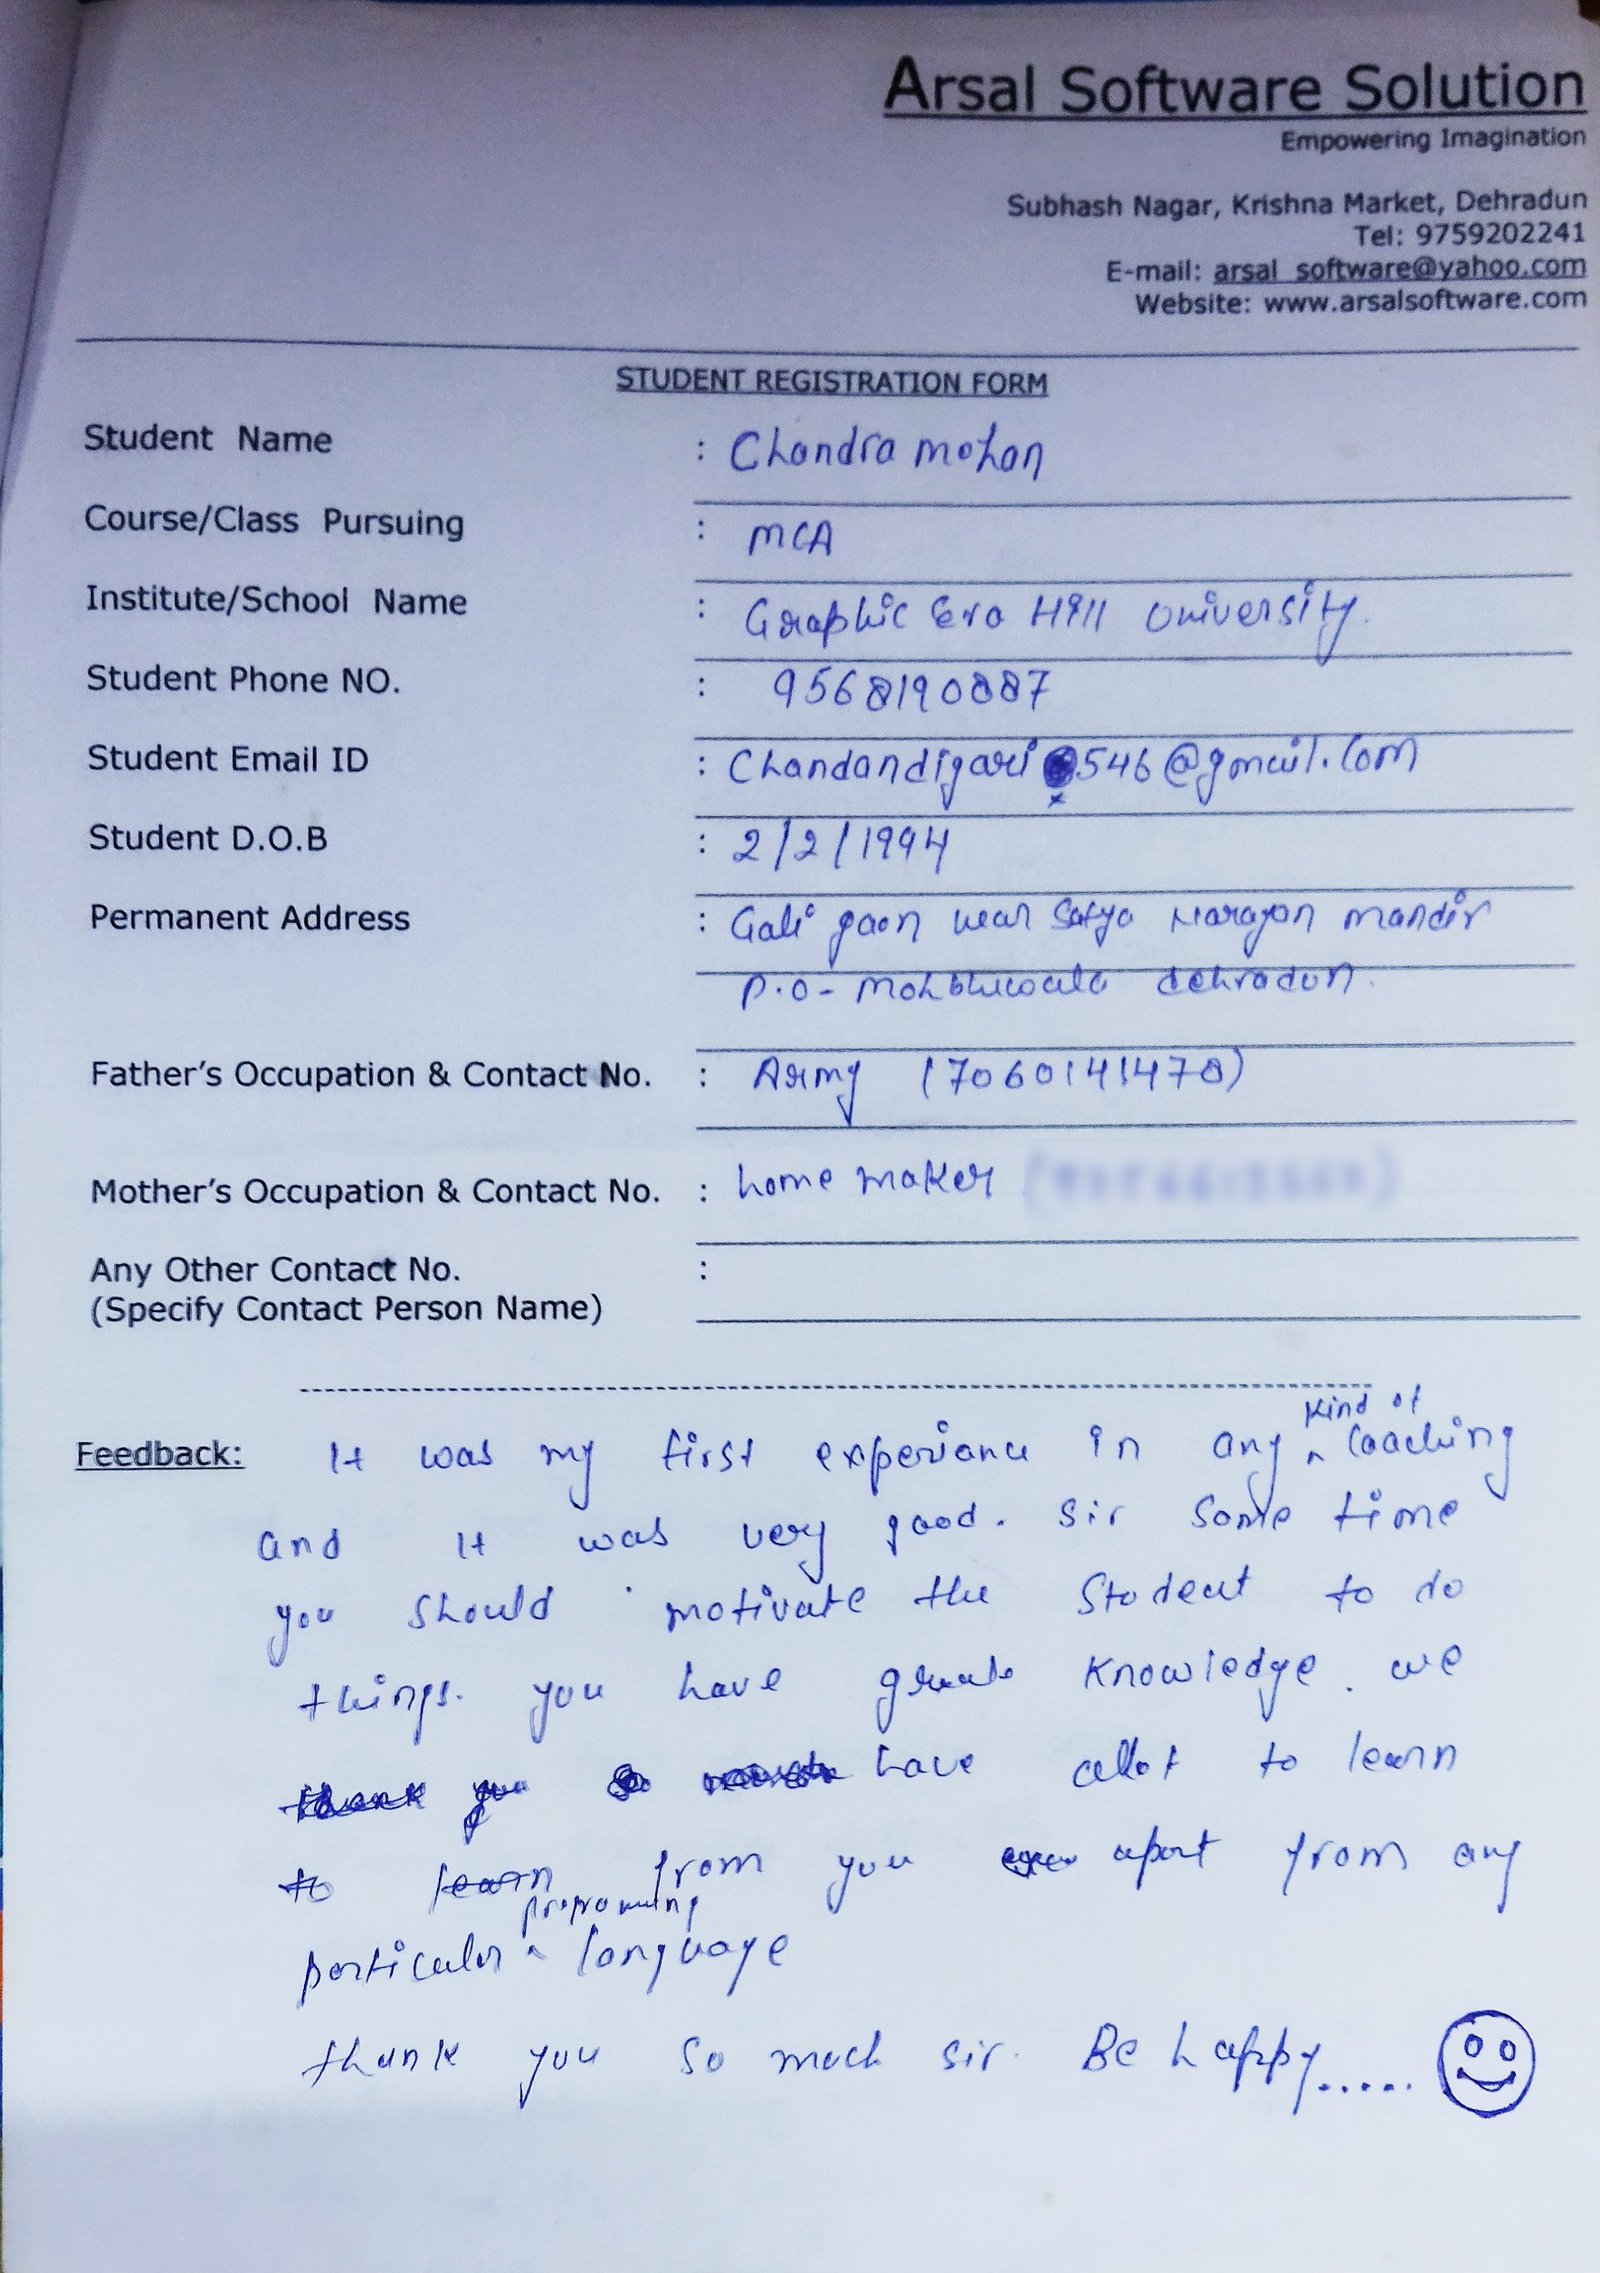 Arsal Software Solution
Empowering Imagination
Subhash Nagar, Krishna Market, Dehradun
Tel: 9759202241
E-mail: arsal_software@yahoo.com
Website: www.arsalsoftware.com
STUDENT REGISTRATION FORM
Student Name : Chandra mohan
Course/Class Pursuing : MCA
Institute/School Name : Graphic Era Hill University.
Student Phone NO. : 9568190887
Student Email ID : Chandandigari 546@gmail.com
Student D.O.B : 2/2/1994
Permanent Address : Gali gaon near Satya Narayan mandir
P.O- dehradun.
Father's Occupation & Contact No. : Army (7060141478)
Mother's Occupation & Contact No. : home maker
Any Other Contact No. :
(Specify Contact Person Name)
kind of
Feedback: It was my first experiance in any ^ Coaching
and it was very good. Sir Some time
you should motivate the Student to do
things. you have great knowledge. we
thank you so much have allot to learn
to learn from you apart from any
programing
particular ^ language
thank you so much sir. Be happy.....